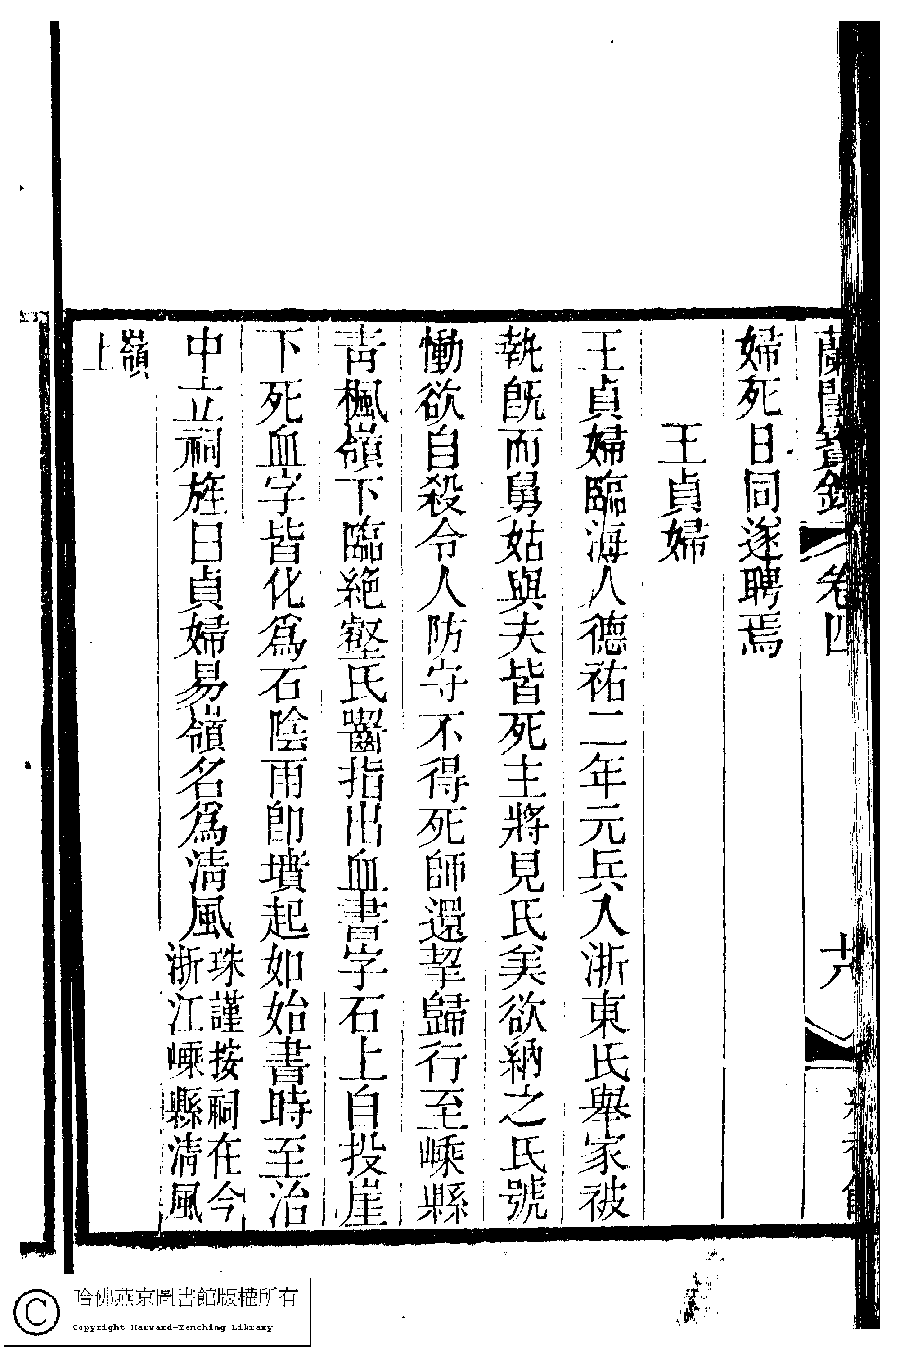 蘭閨寶錄 卷四
婦死日同遂聘焉
王貞婦
王貞婦臨海人德祐二年元兵入浙東氏舉家被
執旣而舅姑與夫皆死主將見氏美欲納之氏號
慟欲自殺令人防守不得死師還挈歸行至嵊縣
靑楓嶺下臨絶壑氏齧指出血書字石上自投崖
下死血字皆化爲石陰雨卽墳起如始書時至治
中立祠旌曰貞婦易嶺名爲淸風
珠謹按祠在今
浙江嵊縣淸風
嶺
上
哈佛燕京圖書館版權所有
Copyright Harvard-Yenching Library